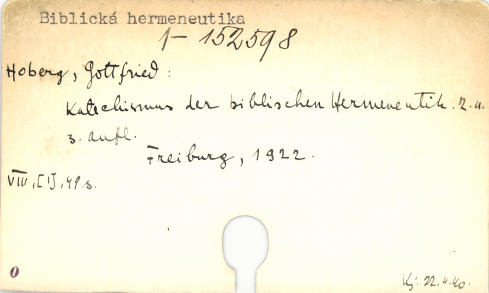 Biblická hermeneutika
1-152598
Hoberg, Gottfried:
Katechismus der biblischen Hermeneutik. 2. u.
3. Aufl.
Freiburg, 1922.
VIII, [1], 49 s.
0
22.4.40.